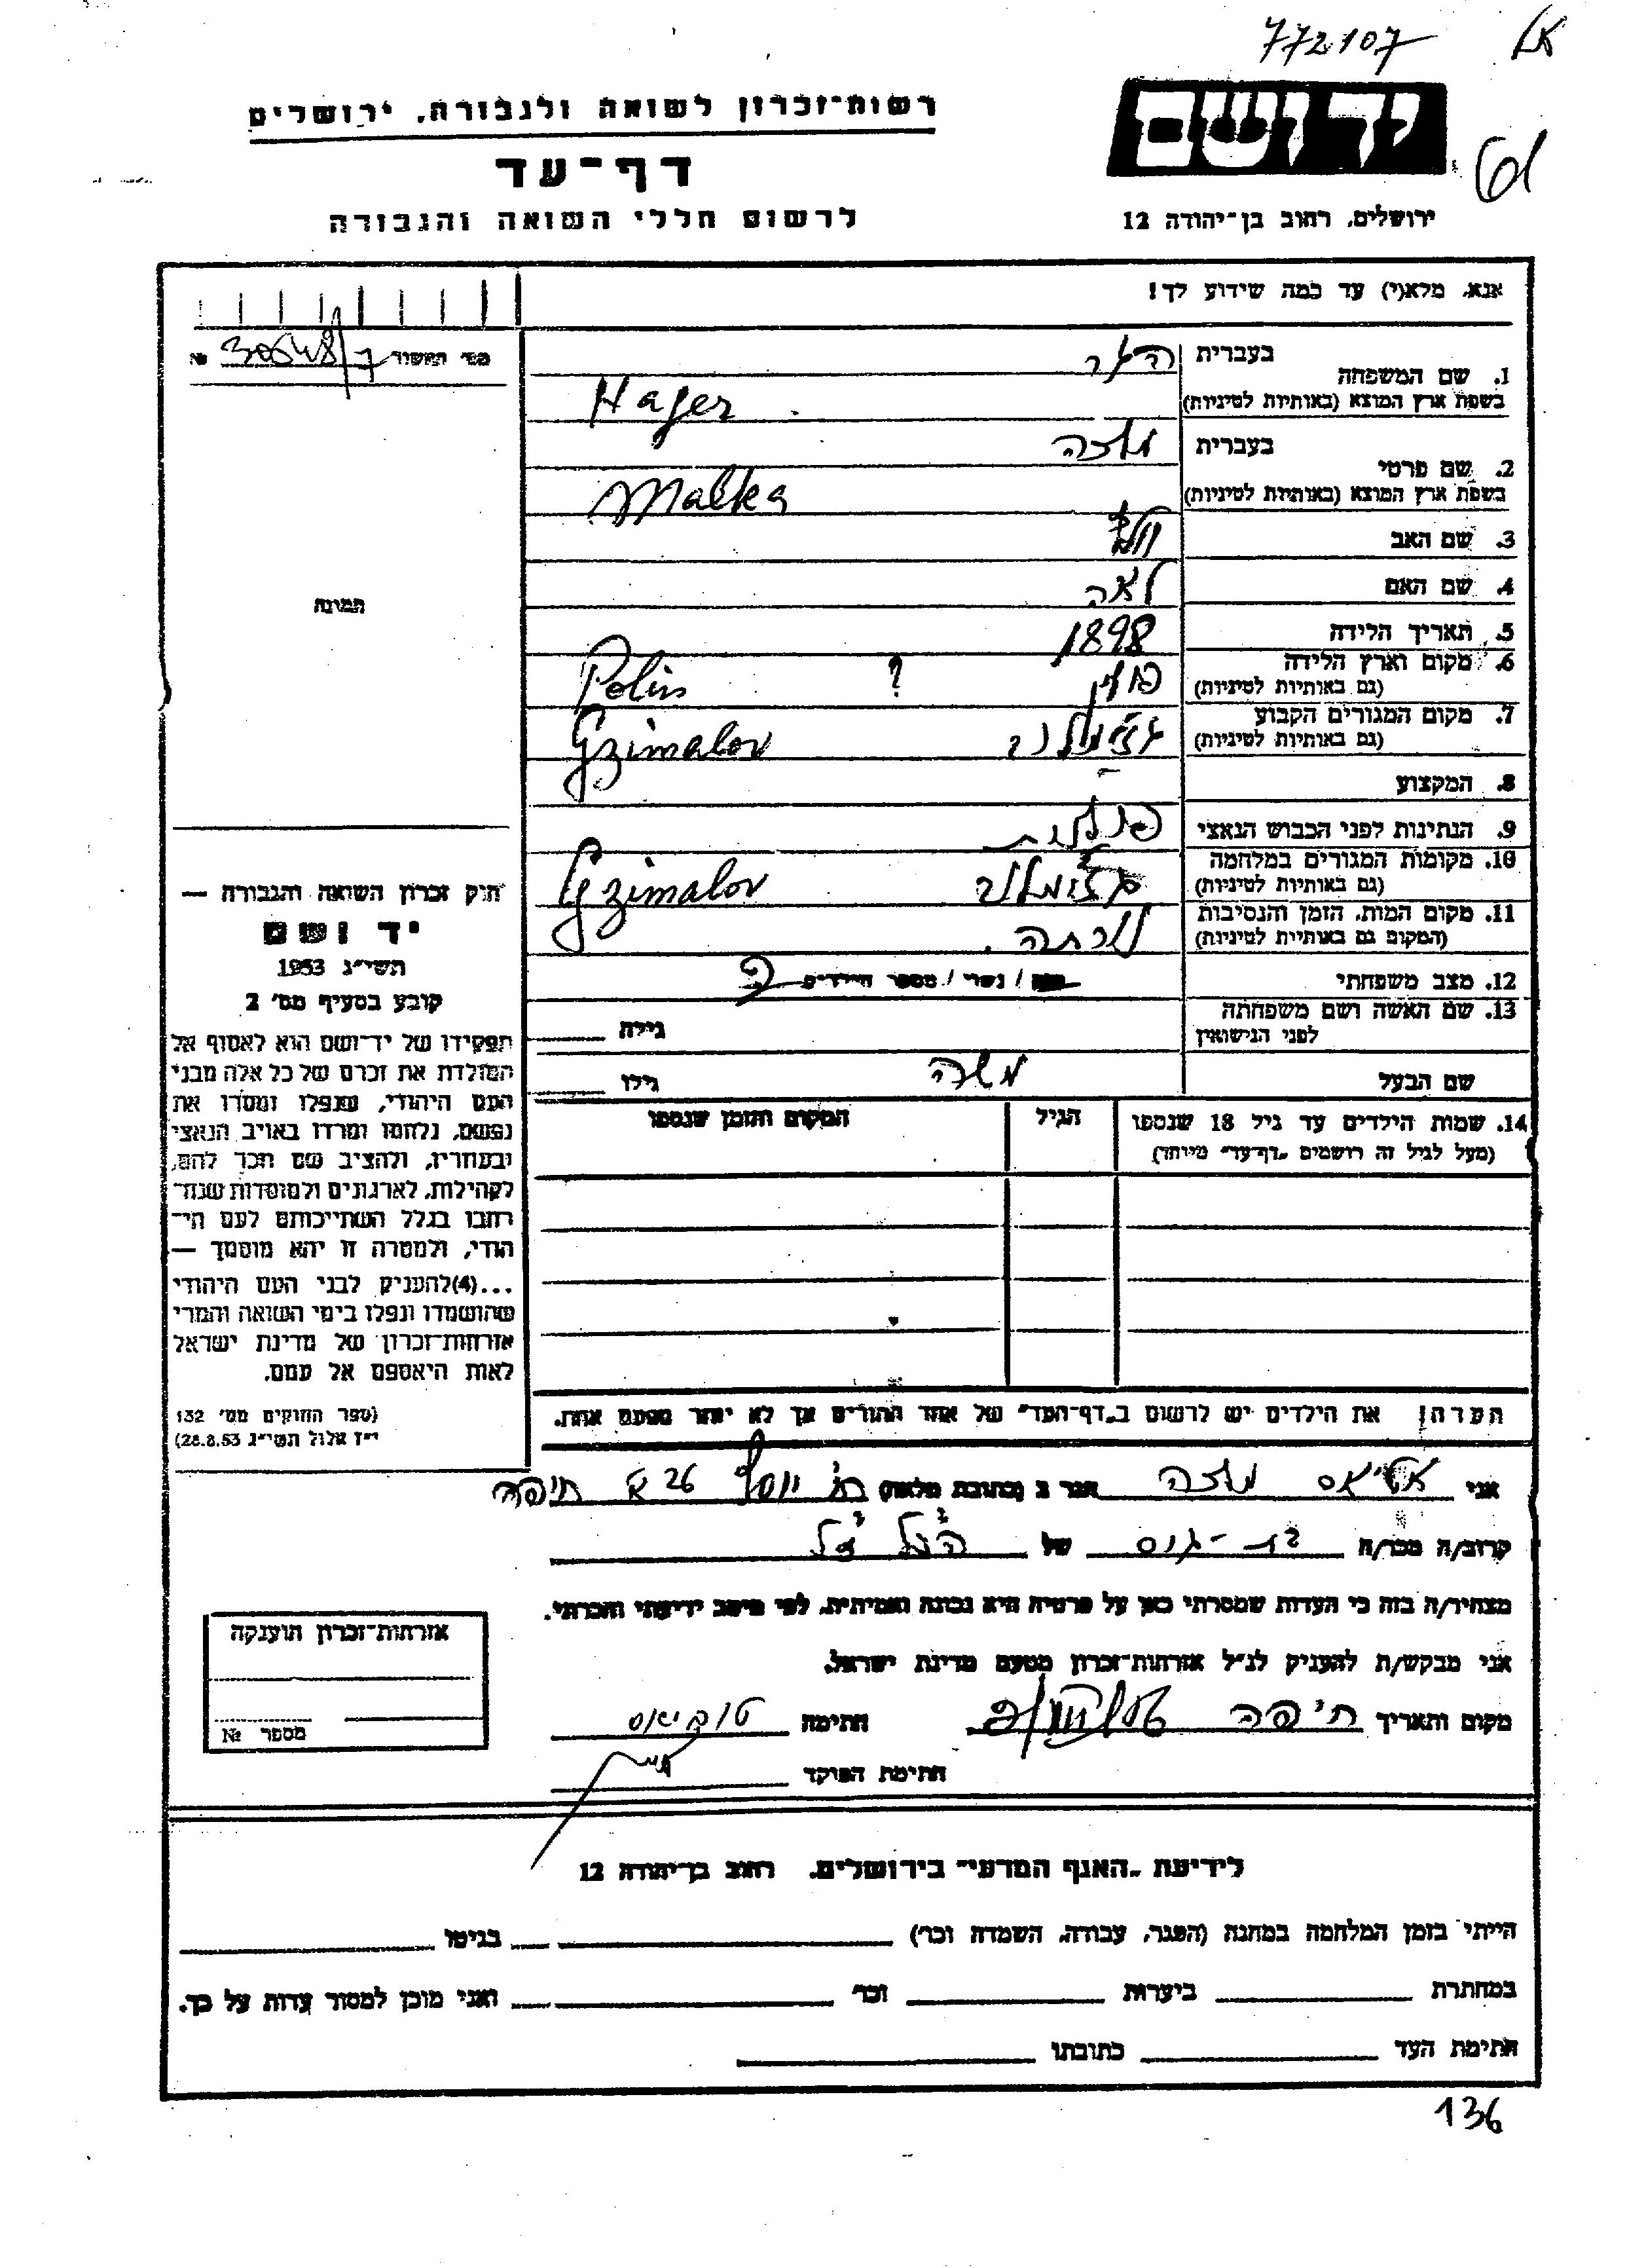 772107
יד ושם
רשות-זכרון לשואה ולגבורה, ירושלים
דף-עד
לרשום חללי השואה והגבורה
ירושלים, רחוב בן-יהודה 12
אנא, מלא(י) עד כמה שידוע לך!
מס' תעשיר
1. שם המשפחה
בעברית
הגר
בשפת ארץ המוצא (באותיות לטיניות)
Hager
2. שם פרטי
בעברית
מלכה
בשפת ארץ המוצא (באותיות לטיניות)
Malka
3. שם האב
4. שם האם
לאה
5. תאריך הלידה
1898
6. מקום וארץ הלידה
(גם באותיות לטיניות)
פולין ? Polin
7. מקום המגורים הקבוע
(גם באותיות לטיניות)
גז'ימלוב Gzimalov
8. המקצוע
-
9. הנתינות לפני הכבוש הנאצי
פולנית
10. מקומות המגורים במלחמה
(גם באותיות לטיניות)
גז'ימלוב Gzimalov
11. מקום המות, הזמן והנסיבות
(המקום גם באותיות לטיניות)
נורתה.
12. מצב משפחתי
/ נשוי / מספר הילדים
13. שם האשה ושם משפחתה
לפני הנישואין
גילה
שם הבעל
משה
גילו
14. שמות הילדים עד גיל 18 שנספו
(מעל לגיל זה רושמים "דף-עד" מיוחד)
הגיל
המקום והזמן שנספו
הערה! את הילדים יש לרשום ב"דף-העד" של אחד ההורים אך לא יותר מפעם אחת.
תמונה
חוק זכרון השואה והגבורה —
יד ושם
תשי"ג 1953
קובע בסעיף מס' 2
תפקידו של יד-ושם הוא לאסוף אל
המולדת את זכרם של כל אלה מבני
העם היהודי, שנפלו ומסרו את
נפשם, נלחמו ומרדו באויב הנאצי
ובעוזריו, ולהציב שם וזכר להם,
לקהילות, לארגונים ולמוסדות שנח-
רבו בגלל השתייכותם לעם הי-
הודי, ולמטרה זו יהא מוסמך —
...(4) להעניק לבני העם היהודי
שהושמדו ונפלו בימי השואה והמרי
אזרחות-זכרון של מדינת ישראל
לאות היאספם אל עמם.
(ספר החוקים מס' 132
י"ז אלול תשי"ג 28.8.53)
אני מלכה הגר ב (כתובת מלאה) יוסף 26 א חיפה
קרוב/ה מכר/ה בת-גיס של הנ"ל
מצהיר/ה בזה כי העדות שמסרתי כאן על פרטיה היא נכונה ואמיתית, לפי מיטב ידיעתי והכרתי.
אני מבקש/ת להעניק לנ"ל אזרחות-זכרון מטעם מדינת ישראל.
מקום ותאריך חיפה
חתימה
חתימת הפוקד
אזרחות-זכרון הוענקה
מספר №
לידיעת "האגף המדעי" בירושלים, רחוב בן-יהודה 12
הייתי בזמן המלחמה במחנה (הסגר, עבודה, השמדה וכו') בגיטו
במחתרת ביערות וכו' ואני מוכן למסור עדות על כך.
חתימת העד כתובתו
136